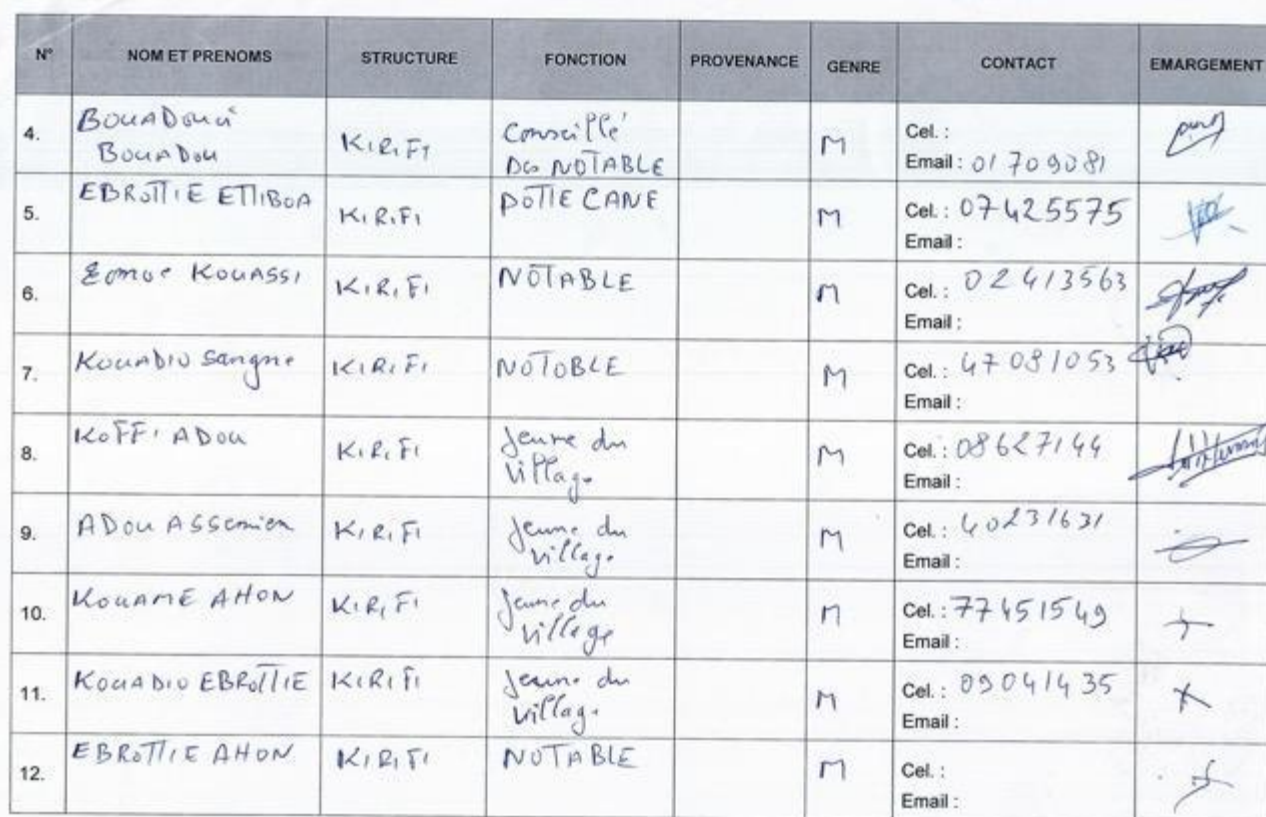 N° NOM ET PRENOMS STRUCTURE FONCTION PROVENANCE GENRE CONTACT EMARGEMENT
4. BOUADOUCI KIRIFI Conseillé M Cel. :
BOUADOU DG NOTABLE Email : 01709081
5. EBROTTIE ETTIBOA KIRIFI POTTE CANE M Cel. : 07425575
Email :
6. KOUASSI KIRIFI NOTABLE M Cel. : 02413563
Email :
7. KOUADIO Sangne KIRIFI NOTOBLE M Cel. : 47081053
Email :
8. KOFFI ADOU KIRIFI Jeune du M Cel. : 08627144
village Email :
9. ADOU ASSEmien KIRIFI Jeune du M Cel. : 40231631
village Email :
10. KOUAME AHON KIRIFI Jeune du M Cel. : 77451549
village Email :
11. KOUADIO EBROTTIE KIRIFI Jeune du M Cel. : 09041435
village Email :
12. EBROTTIE AHON KIRIFI NOTABLE M Cel. :
Email :